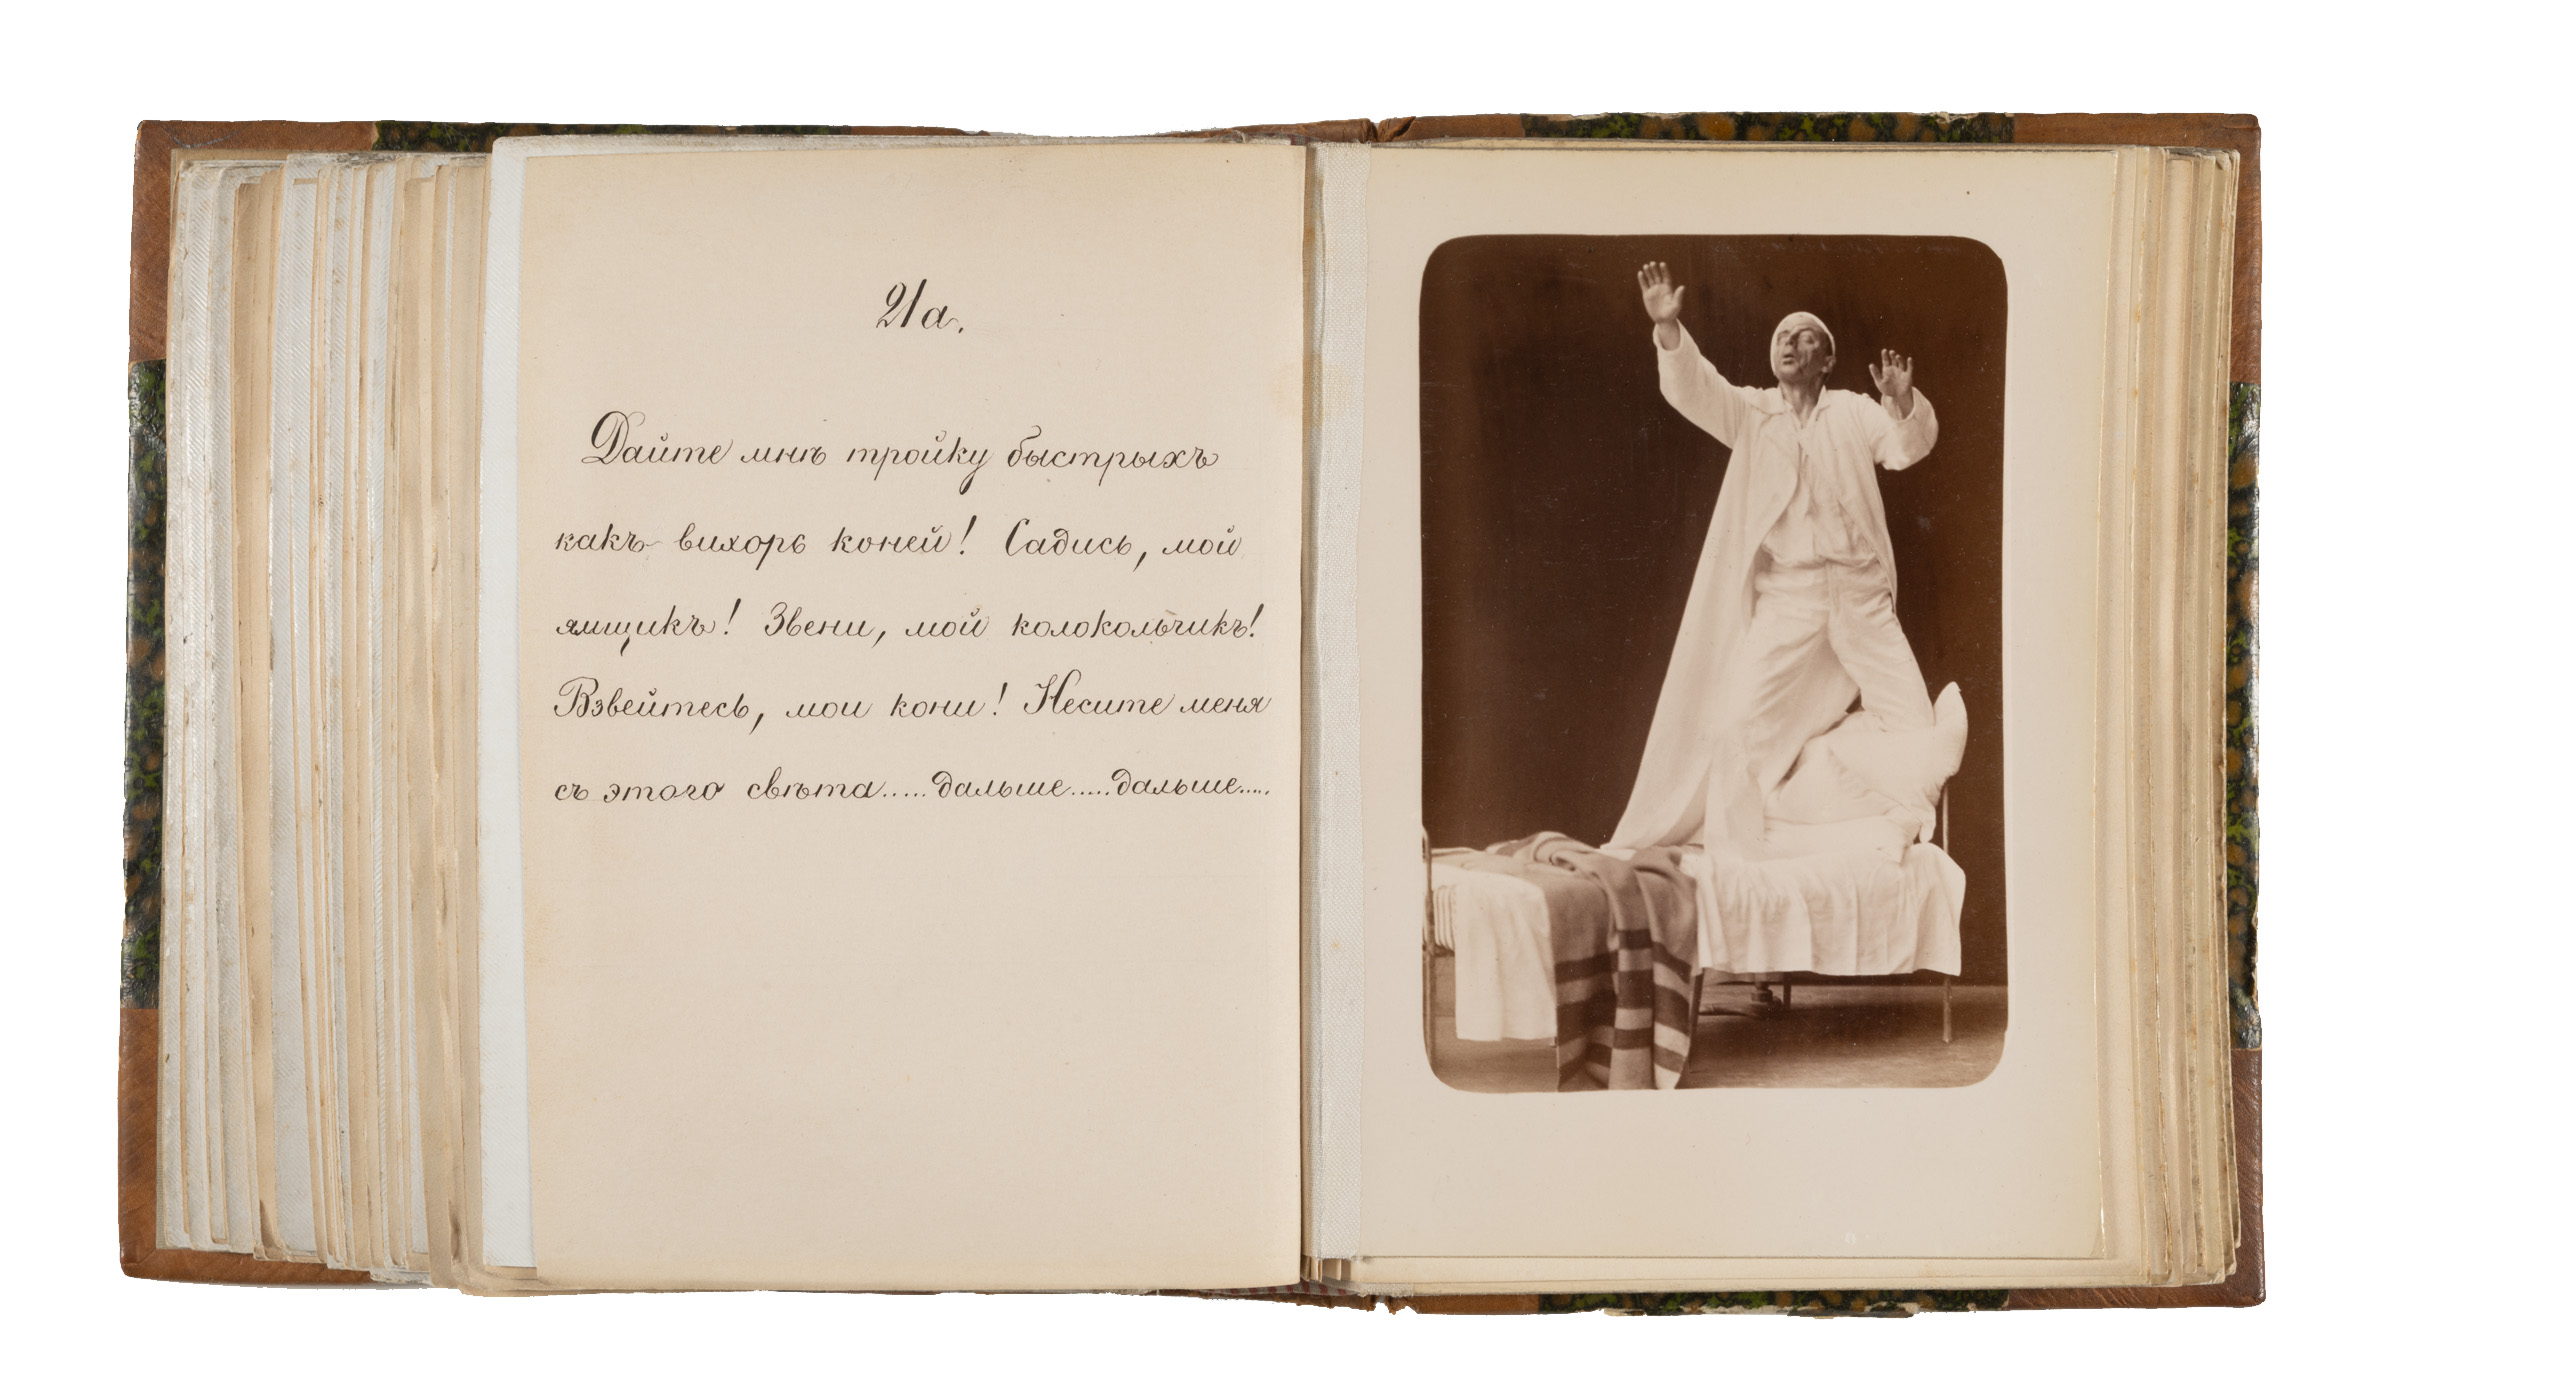 21а.
Дайте мнѣ тройку быстрыхъ
какъ вихорь коней! Садись, мой
ямщикъ! Звени, мой колокольчикъ!
Взвейтесь, мои кони! Несите меня
съ этого свѣта.....дальше.....дальше.....